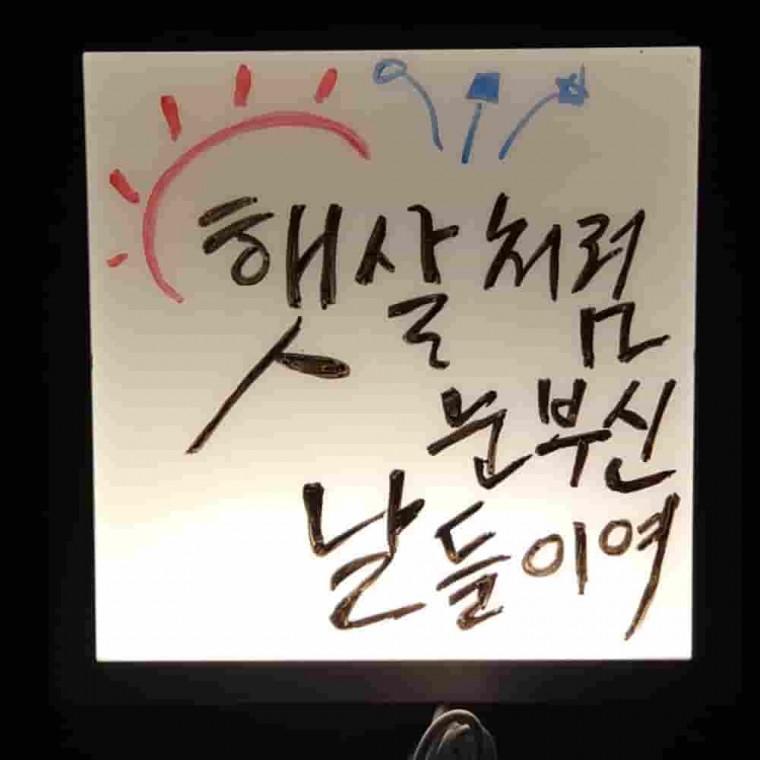 햇살처럼
눈부신
날들이여